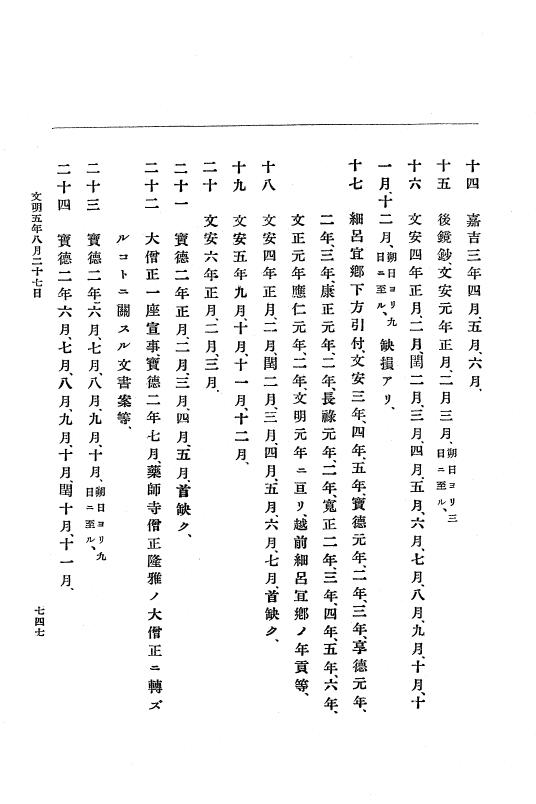 十四　嘉吉三年四月、五月、六月、
十五　後鏡鈔、文安元年正月、二月三月、朔日ヨリ三日ニ至ル、
十六　文安四年正月、二月、閏二月、三月、四月、五月、六月、七月、八月、九月、十月、十
一月、十二月、朔日ヨリ九日ニ至ル、缺損アリ、
十七　細呂宜鄕下方引付、文安三年、四年、五年、寶德元年、二年、三年、享德元年、
二年、三年、康正元年、二年、長祿元年、二年、寬正二年、三年、四年、五年、六年、
文正元年、應仁元年、二年、文明元年ニ亘リ、越前細呂宜鄕ノ年貢等、
十八　文安四年正月、二月、閏二月、三月、四月、五月、六月、七月、首缺ク、
十九　文安五年九月、十月、十一月、十二月、
二十　文安六年正月、二月、三月、
二十一　寶德二年正月、二月、三月、四月、五月、首缺ク、
二十二　大僧正一座宣事、寶德二年七月、藥師寺僧正隆雅ノ大僧正ニ轉ズ
ルコトニ關スル文書案等、
二十三　寶德二年六月、七月、八月、九月、十月、朔日ヨリ九日ニ至ル、
二十四　寶德二年六月、七月、八月、九月、十月、閏十月、十一月、
文明五年八月二十七日
七四七